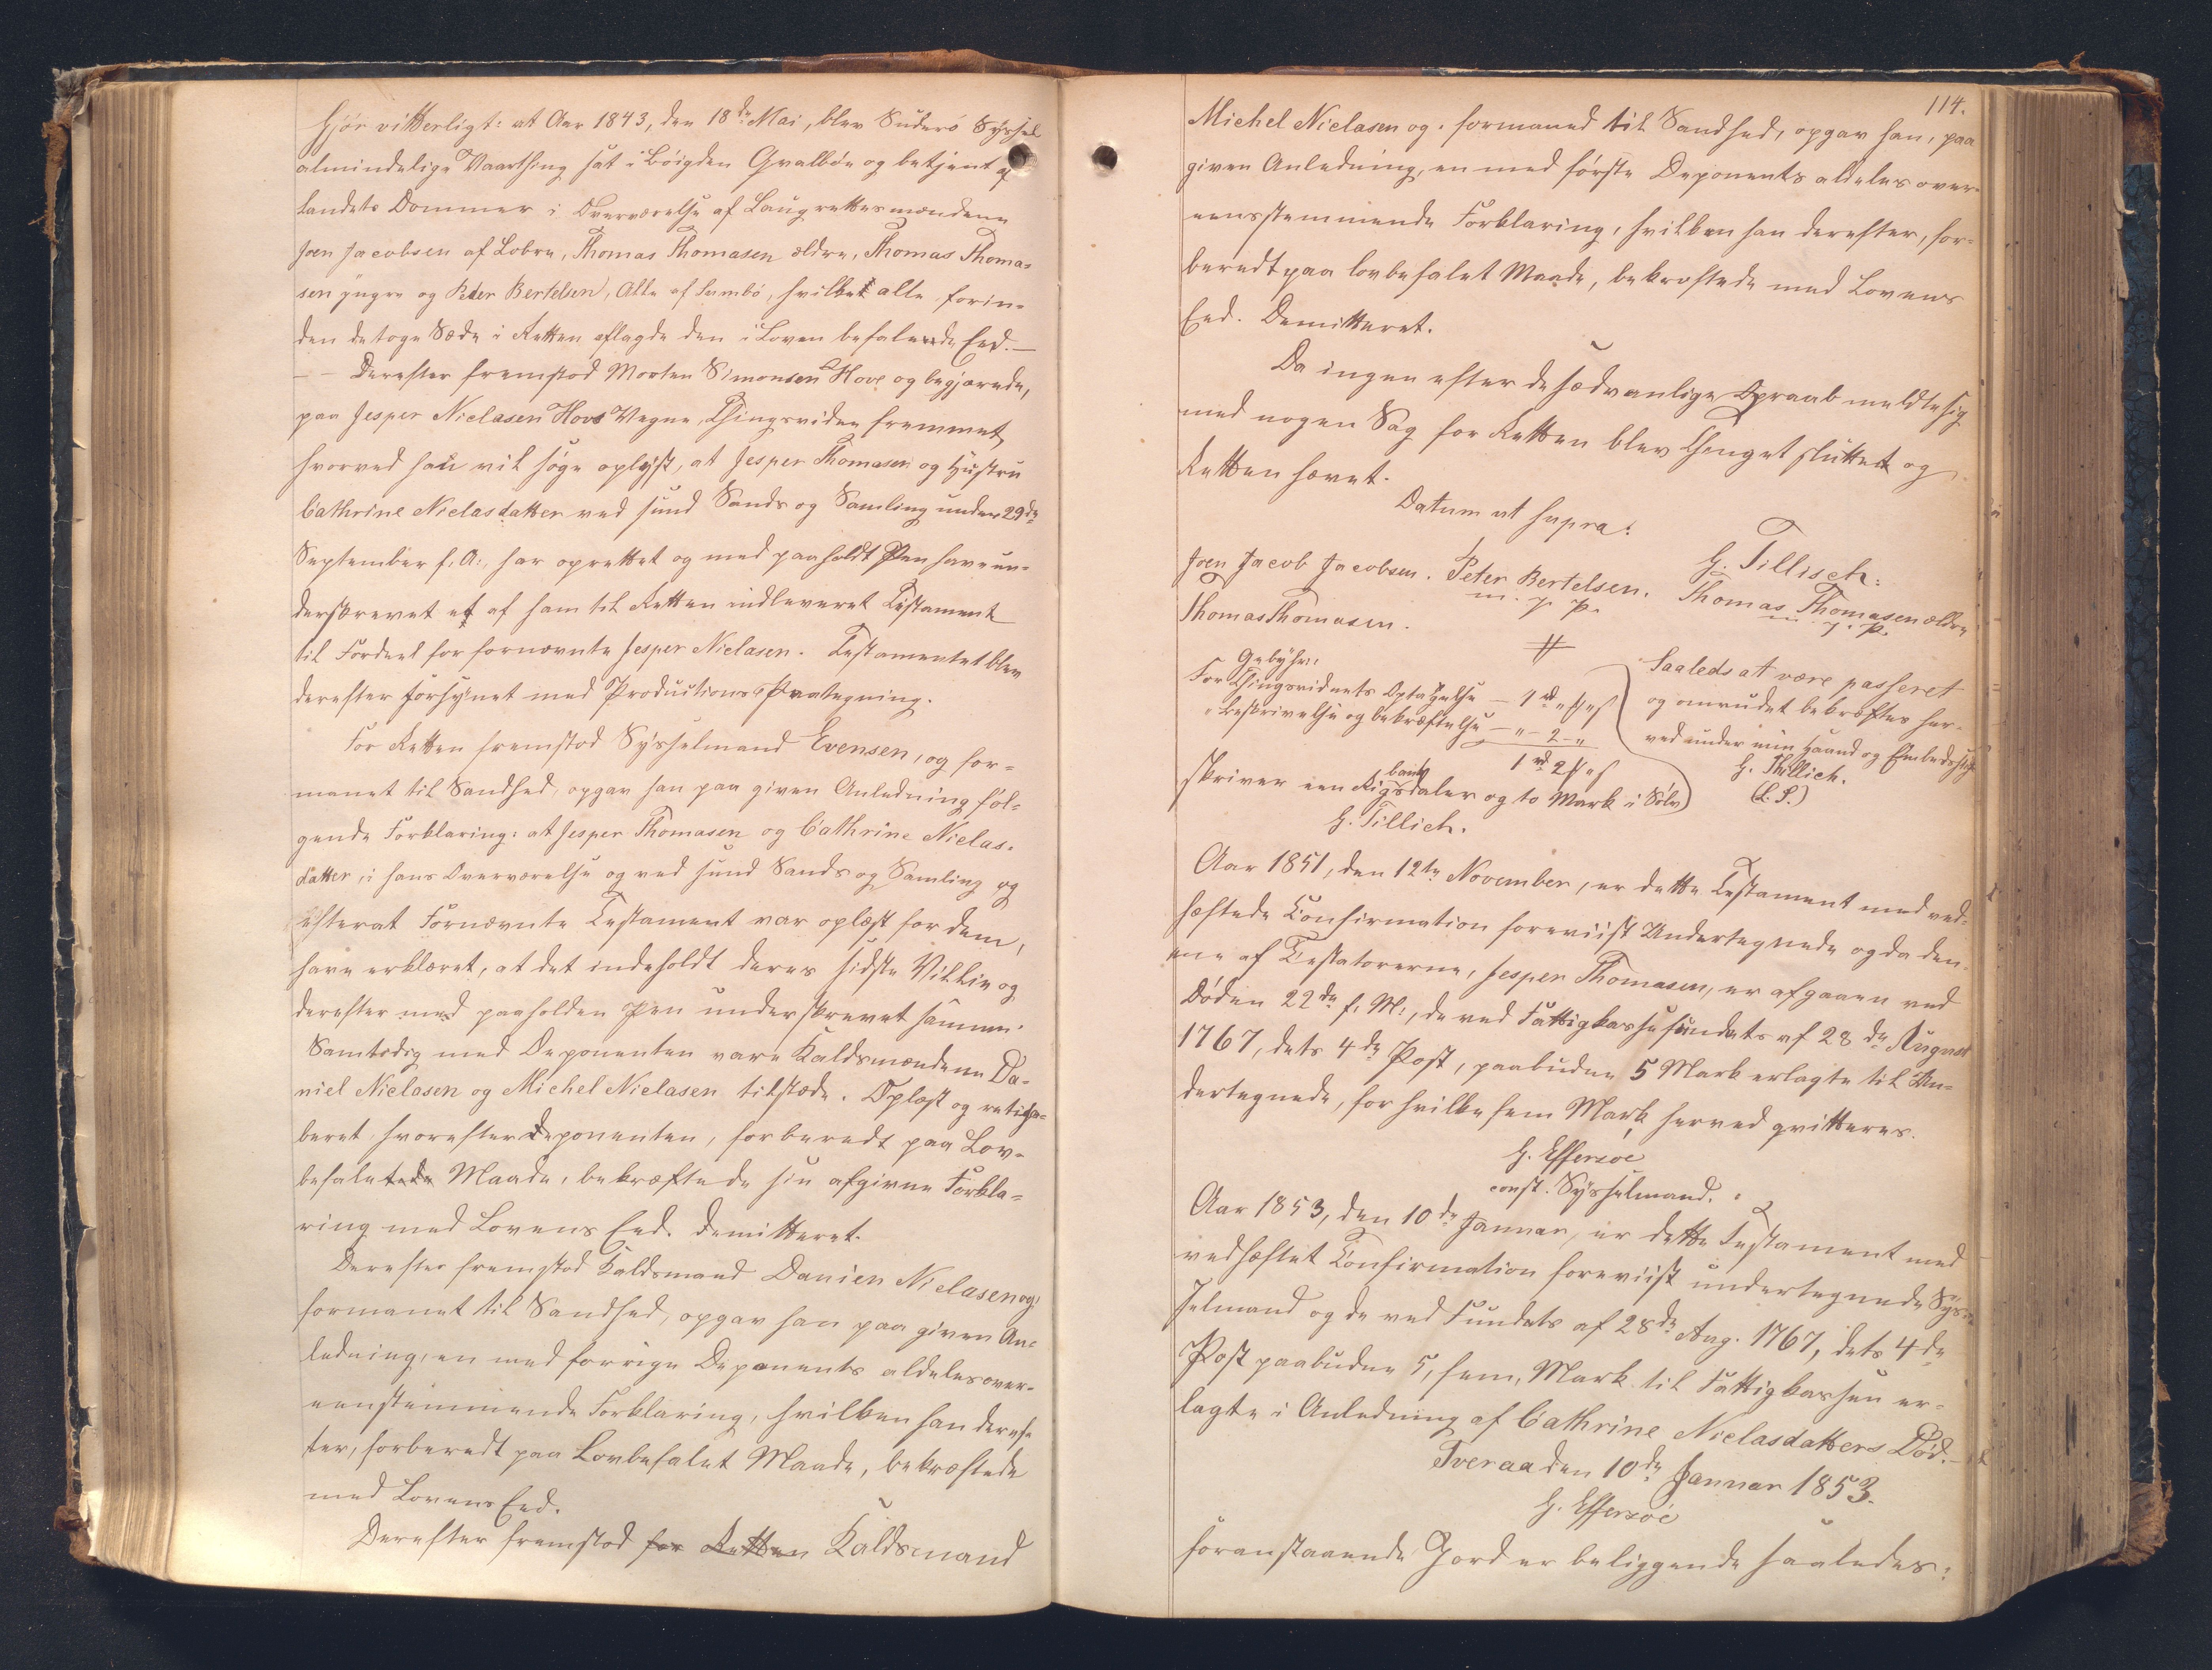 Gjør vitterligt: at Aar 1843, den 18de Mai, blev Suderø Syssel
almindelige Vaarthing sat i Bøigden Qvalbøe og betjent af
Landets Dommer i Overværelse af Laugrettesmændene
Joen Jacobsen af Lobra, Thomas Thomasen ældre, Thomas Thoma-
sen yngre og Peder Bertelsen, Alle af Sumbø, hvilket alle forin-
den de toge Sæde i Retten aflagde den i Loven befalede Eed. —
— Derefter fremstod Morten Simonsen Hove og begjærede,
paa Jesper Niclasen Hovs Vegne, Thingsvidne fremmet,
hvorved han vil søge oplyst, at Jesper Thomasen og Hustru
Cathrine Niclasdatter ved sund Sands og Samling under 29de
September f. A., har oprettet og med paaholdt Pen have un-
derskrevet et af ham til Retten indleveret Testament
til Fordeel for fornævnte Jesper Niclasen. Testamentet blev
derefter forsynet med Productions Paategning.
For Retten fremstod Sysselmand Evensen, og for-
manet til Sandhed, opgav han paa given Anledning føl-
gende Forklaring: at Jesper Thomasen og Cathrine Niclas-
datter, i hans Overværelse og ved sund Sands og Samling og
efterat Fornævnte Testament var oplæst for dem,
have erklæret, at det indeholdt deres sidste Villie og
derefter med paaholden Pen underskrevet samme.
Samtidig med Deponenten vare Kaldsmændene Da-
niel Niclasen og Michel Niclasen tilstæde. Oplæst og ratiha-
beret hvorefter Deponenten, forberedt paa Lov-
befalet Maade, bekræftede sin afgivne Forkla-
ring med Lovens Eed. Demitteret.
Derefter fremstod Kaldsmand Danien Niclasen og
formanet til Sandhed, opgav han paa given An-
ledning, en med forrige Deponents aldeles over-
eenstemmende Forklaring, hvilken han deref-
ter, forberedt paa Lovbefalet Maade, bekræftede
med Lovens Eed.
Derefter fremstod for Retten Kaldsmand
114.
Michel Niclasen og formanet til Sandhed, opgav han, paa
given Anledning, en med første Deponents aldeles over-
eensstemmende Forklaring, hvilken han derefter, for-
beredt paa lovbefalet Maade, bekræftede med Lovens
Eed. Demitteret.
Da ingen efter de sædvanlige Opraab meldte sig
med nogen Sag for Retten blev Thinget sluttet og
Retten hævet.
Datum ut supra.
G. Tillisch.
Joen Jacob Jacobsen. Peter Bertelsen. Thomas Thomasen ældre
m. f. P. m. f. P.
Thomas Thomasen.
Gebyhr:
For Thingsvidnets Optagelse — 1 rd „ ß „ ß
„ Beskrivelse og bekræftelse — „ - 2 - „
1 rd 2 ß „ ß
skriver een Rigsbankdaler og to Mark i Sølv
G. Tillich.
Saaleds at være passeret
og omrudet bekræftes her-
ved under min Haand og Embedssegl
G. Thillich.
(L. S.)
Aar 1851, den 12te November, er dette Testament med ved-
hæftede Confirmation foreviist Undertegnede og da den-
ene af Testatorerne, Jesper Thomasen, er afgaaen ved
Døden 22de f. M., de ved Fattigkasse fundats af 28de August
1767, dets 4de Post, paabudne 5 Mark erlagte til Un-
dertegnede, for hvilke fem Mark herved qvitteres.
G. Effersøe
const. Sysselmand.
Aar 1853, den 10de Januar, er dette Testament med
vedhæftet Confirmation foreviist undertegnede Sys-
selmand og de ved Fundats af 28de Aug. 1767, dets 4de
Post paabudne 5, fem, Mark til Fattigkassen er-
lagte i Anledning af Cathrine Niclasdatters Død. —
Tveraa den 10de Januar 1853.
G. Effersøe
foranstaaende Jord er beliggende saaledes: